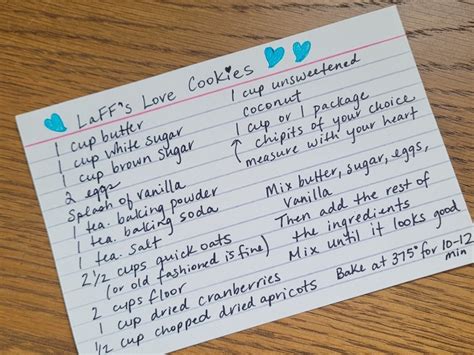 LaFF's Love Cookies
1 cup butter
1 cup white sugar
1 cup brown sugar
2 eggs
Splash of vanilla
1 tea. baking powder
1 tea. baking soda
1 tea. salt
2 1/2 cups quick oats
(or old fashioned is fine)
2 cups floor
1 cup dried cranberries
1/2 cup chopped dried apricots
1 cup unsweetened
coconut
1 cup or 1 package
↑ chipits of your choice
measure with your heart
Mix butter, sugar, eggs,
vanilla
Then add the rest of
the ingredients
Mix until it looks good
Bake at 375° for 10-12
min